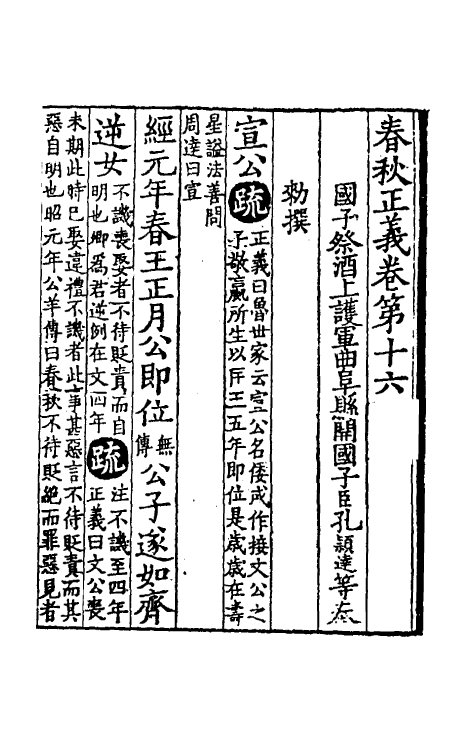 春秋正義卷第十六
國子祭酒上護軍曲阜縣開國子臣孔穎達等奉
勑撰
宣公疏正義曰魯世家云宣公名倭或作接文公之
子敬嬴所生以匡王五年即位是歲歲在壽
星謚法善問
周達曰宣
經元年春王正月公即位無
傳公子遂如齊
逆女不譏喪娶者不待貶責而自
明也卿爲君逆例在文四年疏注不譏至四年
正義曰文公喪
未期此時巳娶違禮不譏者此事甚惡言不待貶責而其
惡自明也昭元年公羊傳曰春秋不待貶絶而罪惡見者